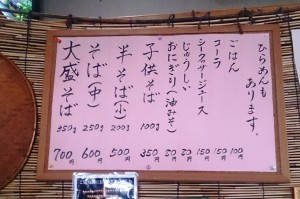 ひらめんもあります.
ごはん 100円
コーラ 150円
シークヮーサージュース 150円
じゅうしぃ 50
おにぎり(油みそ) 50
子供そば 100g 350円
半そば(小) 200g 500円
そば(中) 250g 600円
大盛そば 350g 700円